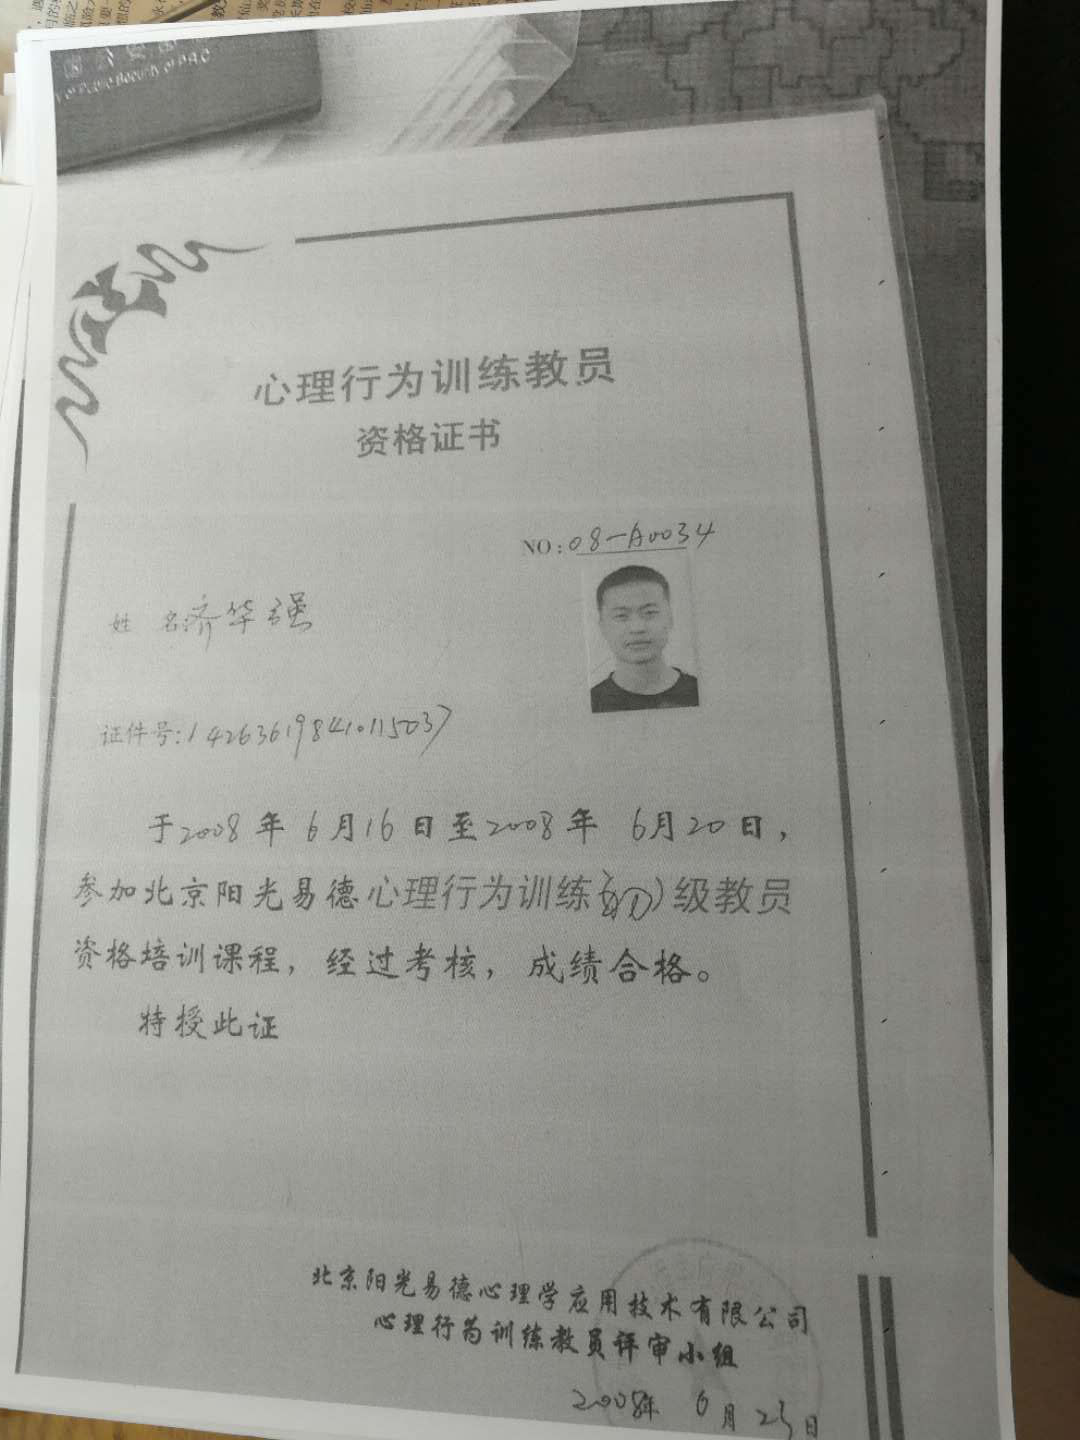 of Public Security of P.R.C
心理行为训练教员
资格证书
NO:08-A0034
姓 名 济华强
证件号:142636198410115037
于2008年 6月16日至2008年 6月20日,
参加北京阳光易德心理行为训练(初)级教员
资格培训课程,经过考核,成绩合格。
特授此证
北京阳光易德心理学应用技术有限公司
心理行为训练教员评审小组
2008年 6月23日